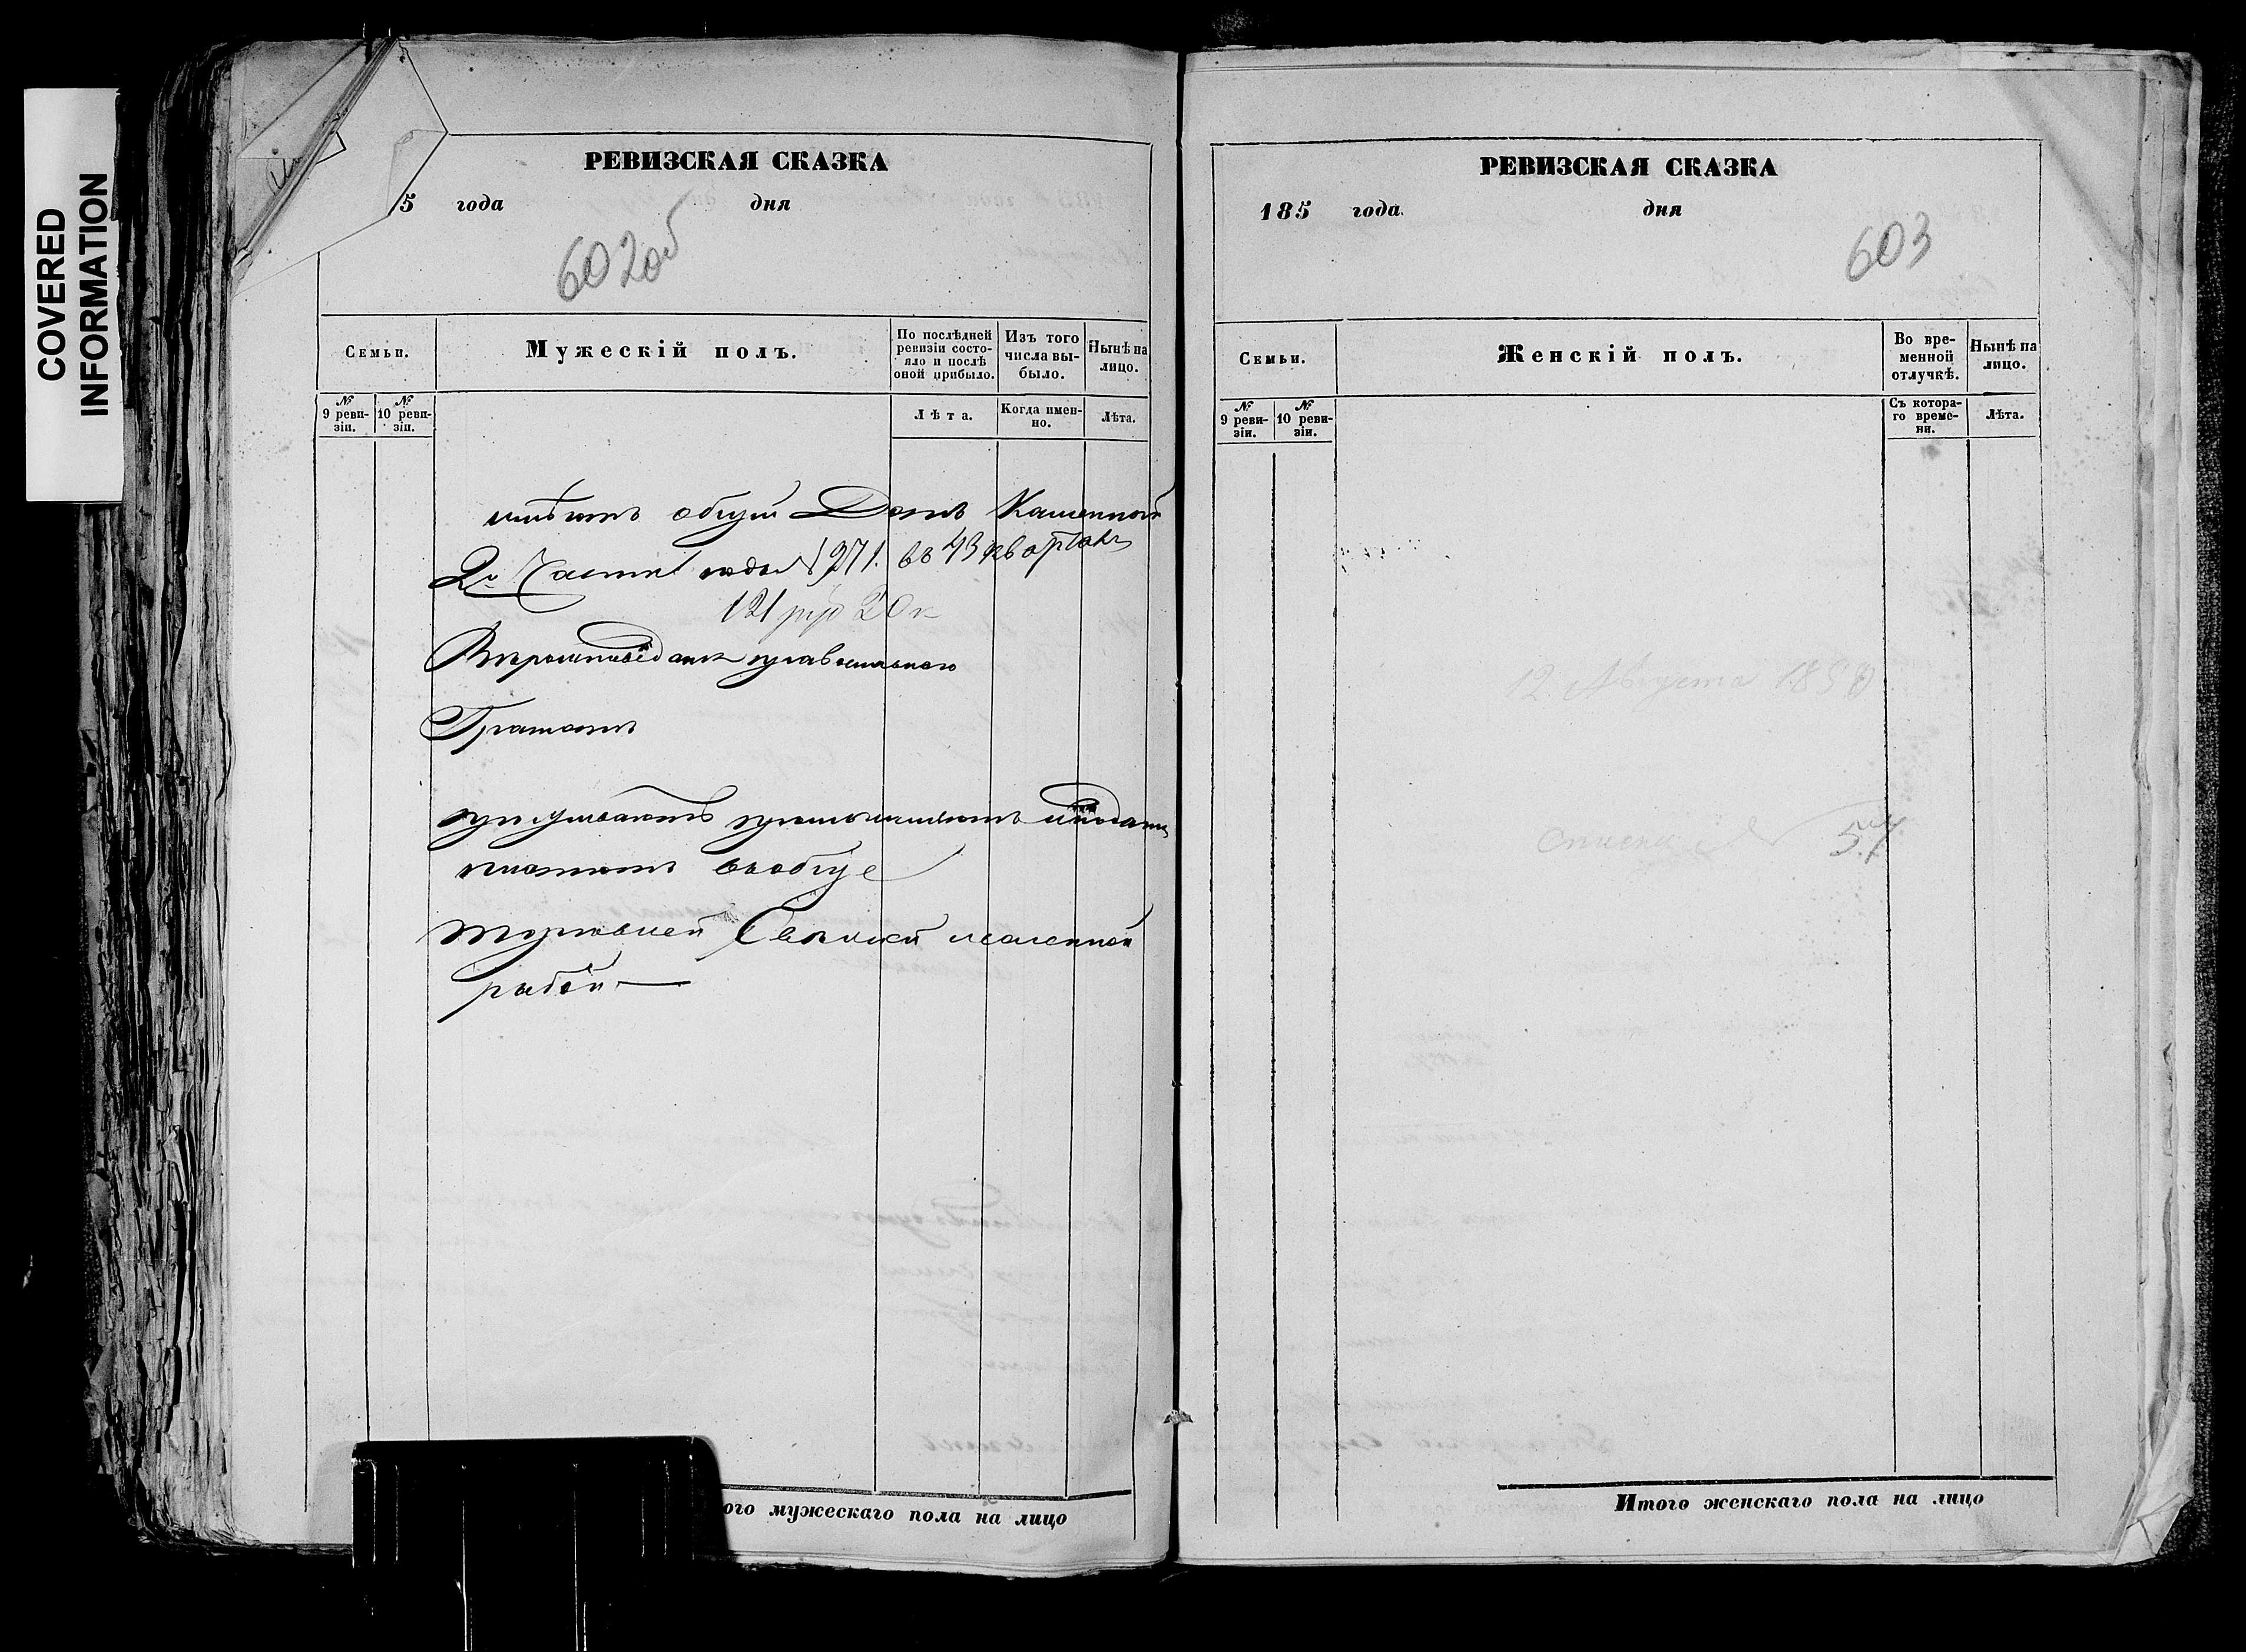 COVERED
INFORMATION
РЕВИЗСКАЯ СКАЗКА
5 года дня
602об
Семьи.
Мужескій полъ.
По послѣдней ревизіи состояло и послѣ оной прибыло.
Изъ того числа выбыло.
Нынѣ на лицо.
№ 9 ревизіи.
№ 10 ревизіи.
Лѣта.
Когда именно.
Лѣта.
имѣютъ общій Домъ Каменной
2й Части подъ № 271. въ 43 кварталѣ
121 рур 20 к
Вѣроисповѣданія православнаго
Грамотъ
промышляютъ и подати
платятъ вообще
торговлей Свѣжей и соленной
рыбой —
ого мужескаго пола на лицо
РЕВИЗСКАЯ СКАЗКА
185 года. дня
603
Семьи.
Женскій полъ.
Во временной отлучкѣ.
Нынѣ на лицо.
№ 9 ревизіи.
№ 10 ревизіи.
Съ котораго времени.
Лѣта.
12 Августа 1850
Итого женскаго пола на лицо